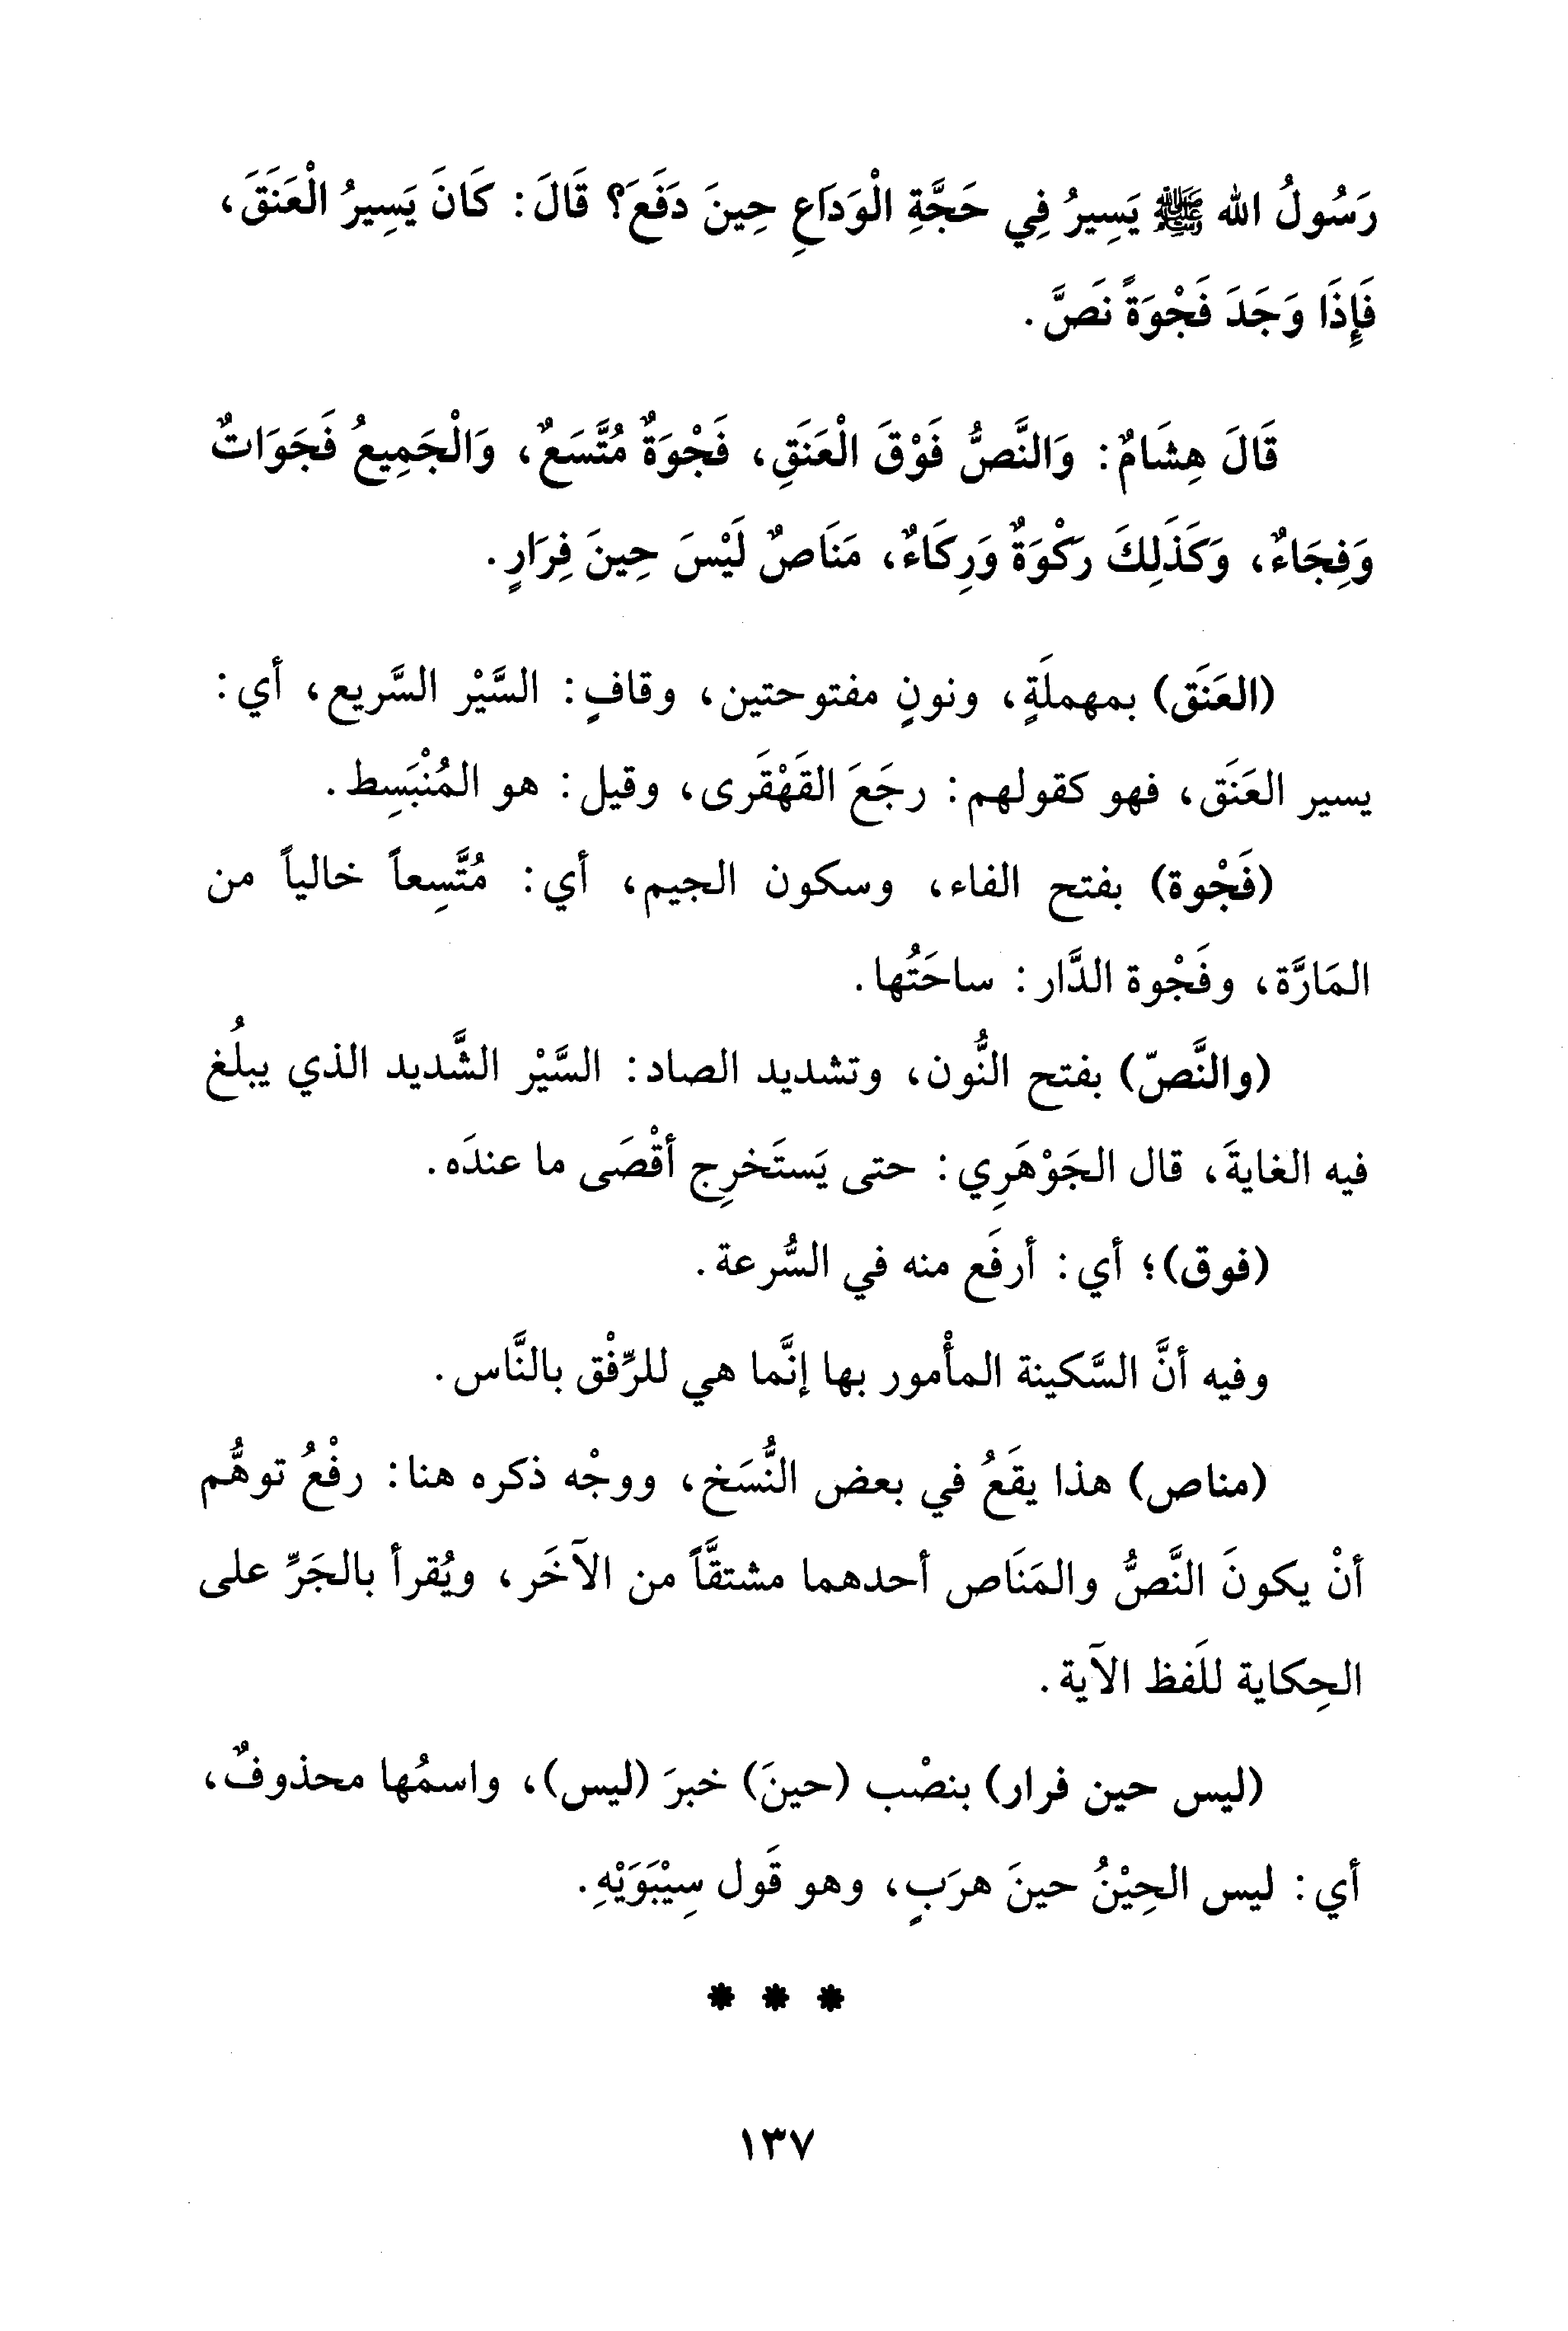 رَسُولُ الله ﷺ يَسِيرُ فِي حَجَّةِ الْوَدَاعِ حِينَ دَفَعَ؟ قَالَ: كَانَ يَسِيرُ الْعَنَقَ،
فَإِذَا وَجَدَ فَجْوَةً نَصَّ.
قَالَ هِشَامٌ: وَالنَّصُّ فَوْقَ الْعَنَقِ، فَجْوَةٌ مُتَّسَعٌ، وَالْجَمِيعُ فَجَوَاتٌ
وَفِجَاءٌ، وَكَذَلِكَ رَكْوَةٌ وَرِكَاءٌ، مَنَاصٌ لَيْسَ حِينَ فِرَارٍ.
(العَنَق) بمهملَةٍ، ونونٍ مفتوحتين، وقافٍ: السَّيْر السَّريع، أي:
يسير العَنَق، فهو كقولهم: رجَعَ القَهْقَرى، وقيل: هو المُنْبَسِط.
(فَجْوة) بفتح الفاء، وسكون الجيم، أي: مُتَّسِعاً خالياً من
المَارَّة، وفَجْوة الدَّار: ساحَتُها.
(والنَّصّ) بفتح النُّون، وتشديد الصاد: السَّيْر الشَّديد الذي يبلُغ
فيه الغايةَ، قال الجَوْهَرِي: حتى يَستَخرِج أقْصَى ما عندَه.
(فوق)؛ أي: أرفَع منه في السُّرعة.
وفيه أنَّ السَّكينة المأْمور بها إنَّما هي للرِّفْق بالنَّاس.
(مناص) هذا يقَعُ في بعض النُّسَخ، ووجْه ذكره هنا: رفْعُ توهُّم
أنْ يكونَ النَّصُّ والمَنَاص أحدهما مشتقَّاً من الآخَر، ويُقرأ بالجَرِّ على
الحِكاية للَفظ الآية.
(ليس حين فرار) بنصْب (حينَ) خبرَ (ليس)، واسمُها محذوفٌ،
أي: ليس الحِيْنُ حينَ هرَبٍ، وهو قَول سِيْبَوَيْهِ.
* * *
١٣٧